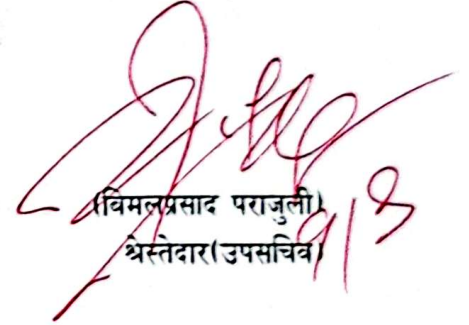 (विमलप्रसाद पराजुली)
श्रेस्तेदार(उपसचिव)